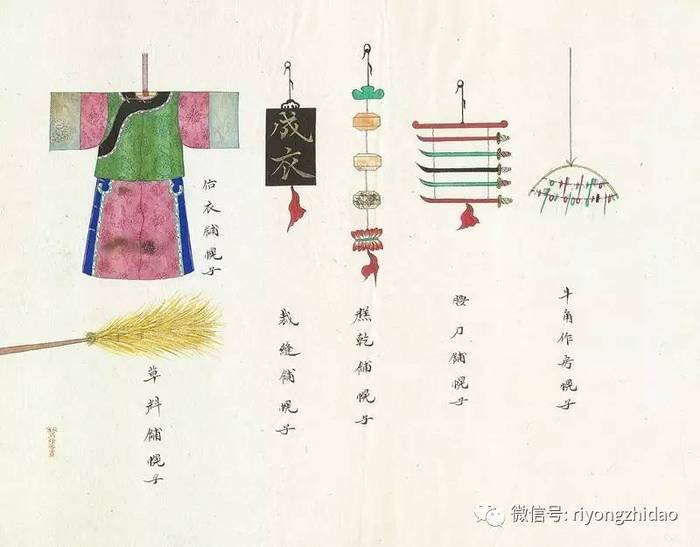 估衣舖幌子
成衣
裁縫舖幌子
糕乾舖幌子
腰刀舖幌子
牛角作房幌子
草料舖幌子
微信号: riyongzhidao